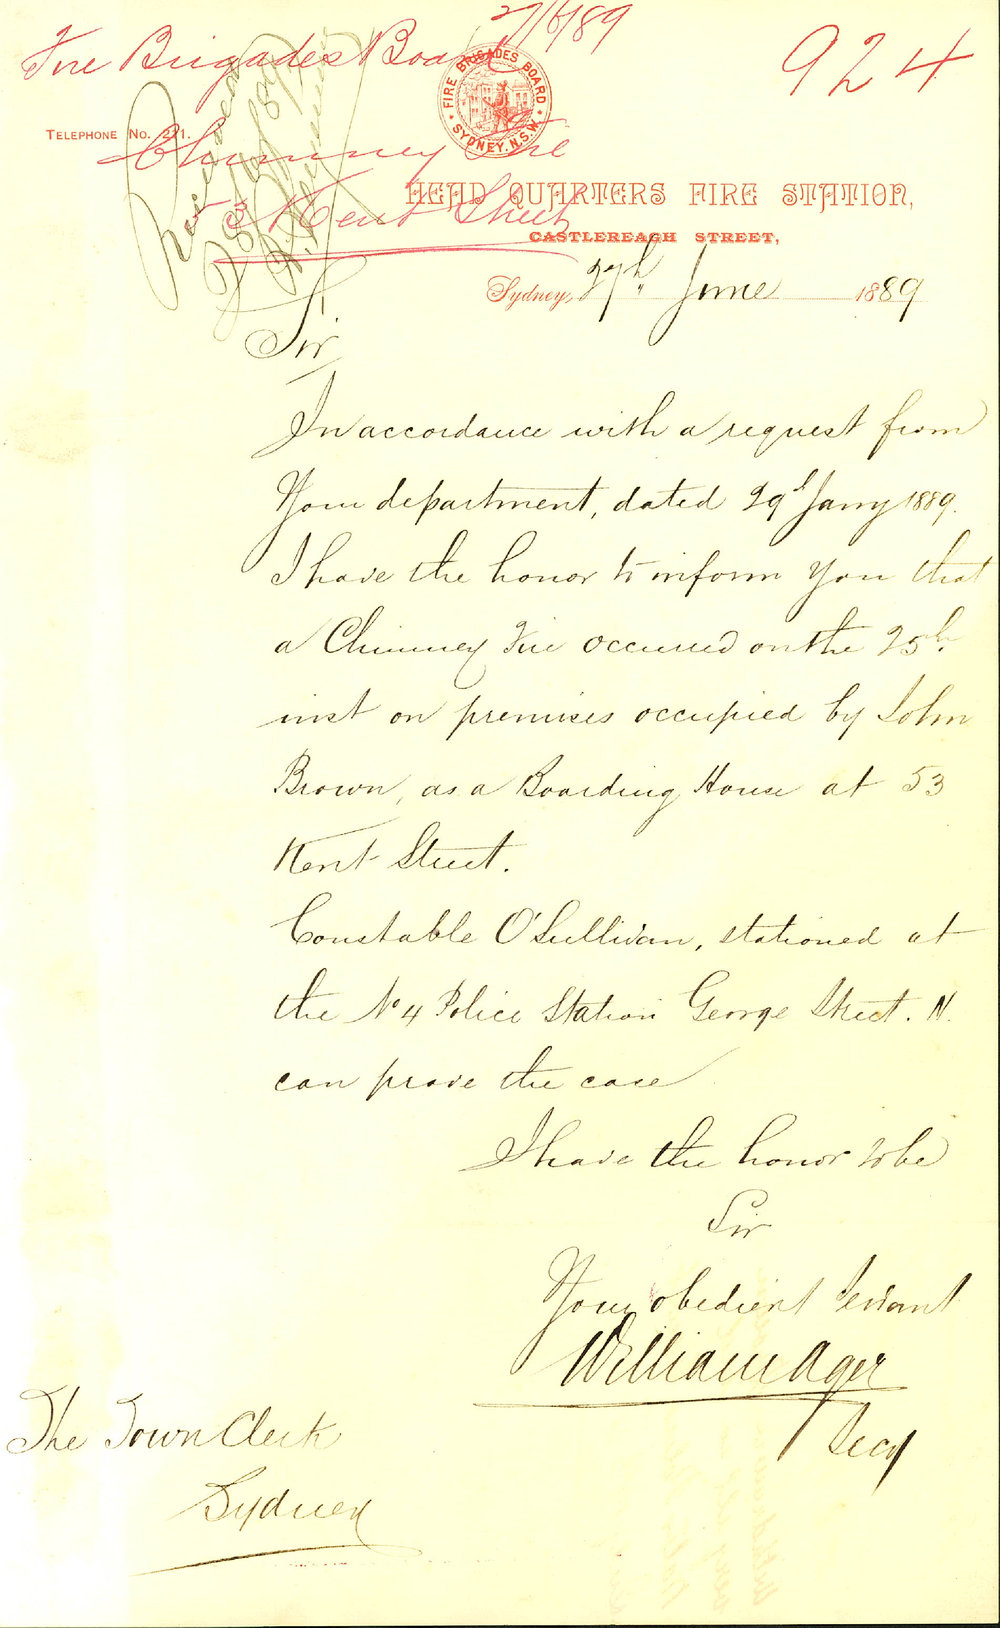 27/6/89
Fire Brigades Board
924
FIRE BRIGADES BOARD
SYDNEY. N.S.W.
TELEPHONE No. 221.
Chimney Fire
53 Kent Street
HEAD QUARTERS FIRE STATION,
CASTLEREAGH STREET,
Sydney, 27th June 1889
Sir
In accordance with a request from
Your department, dated 29th Jany 1889.
I have the honor to inform you that
a Chimney Fire occurred on the 25th.
inst on premises occupied by John
Brown, as a Boarding House at 53
Kent Street.
Constable O'Sullivan, stationed at
the No 4 Police Station George Street. N.
can prove the case
I have the honor to be
Sir
Your obedient Servant
William Ager
Secy
The Town Clerk
Sydney